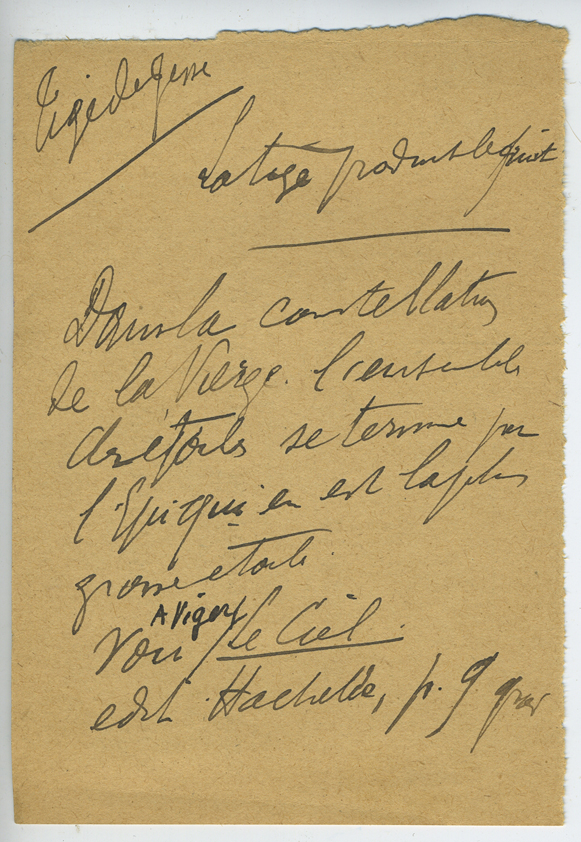 Tige de Jessé
La tige produit le fruit
Dans la constellation
de la Vierge. l'ensemble
des étoiles se termine par
l'Epi qui en est la plus
grosse etoile.
A Viger
Voir Le Ciel.
edit Hachette, p. 9